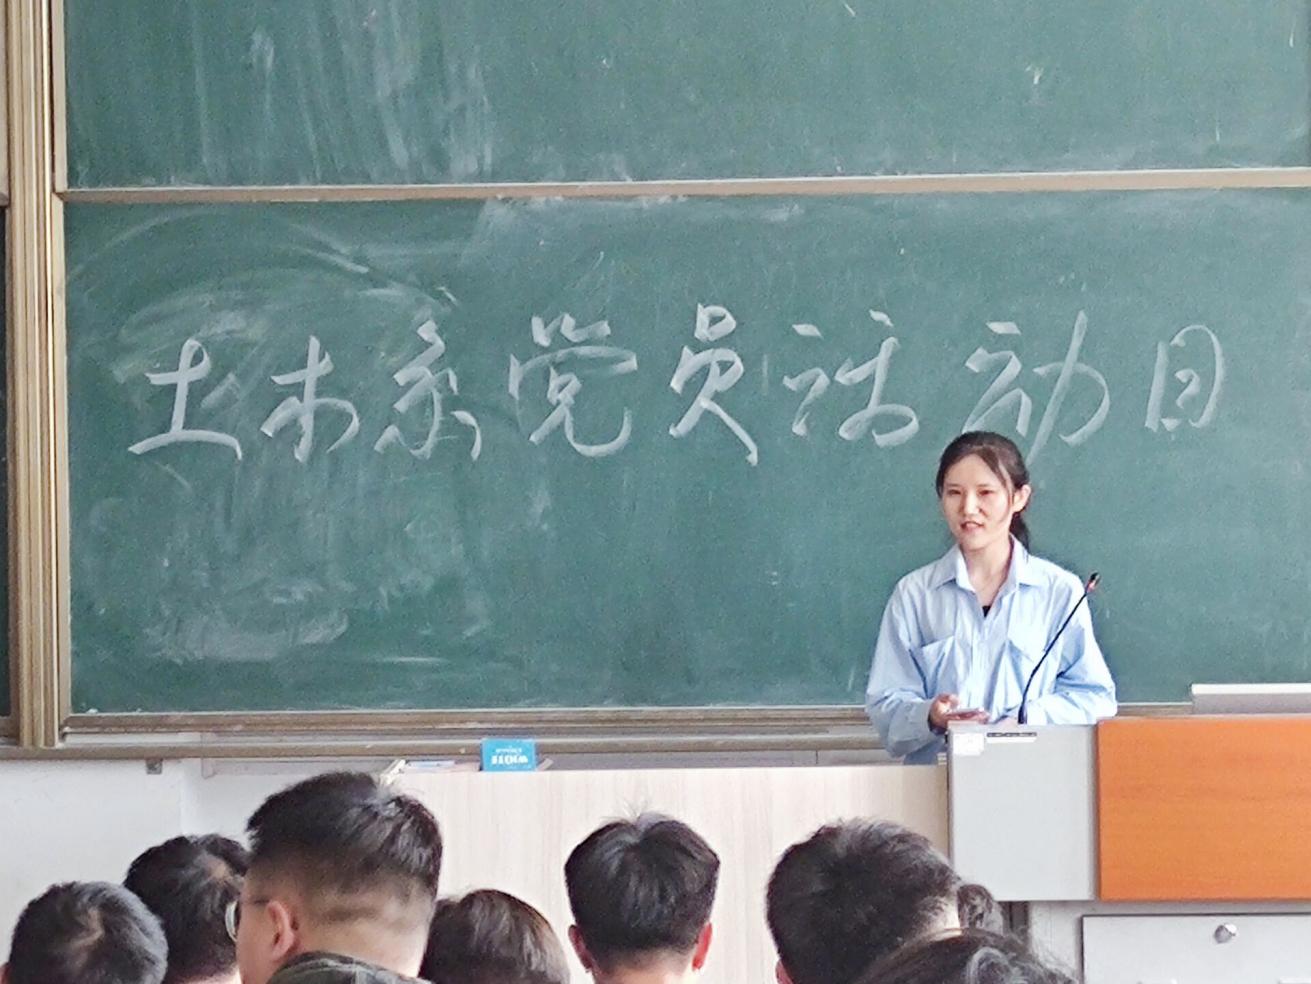 土木系党员活动日
WHITE